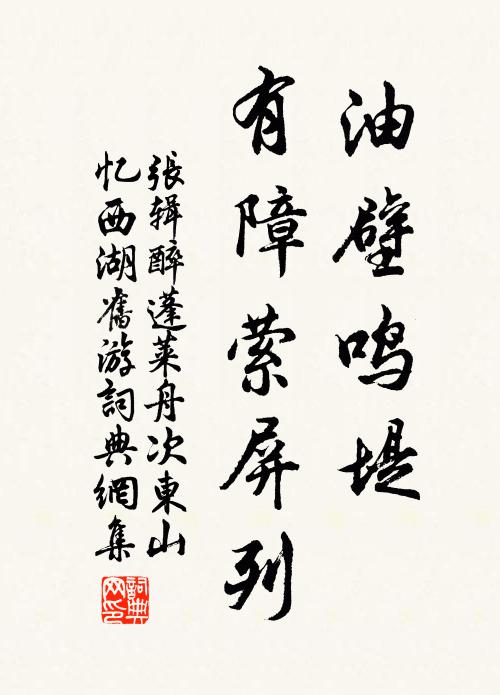 油壁鸣堤
有障萦屏列
張辑醉蓬莱舟次東山
忆西湖舊游詞典網集
詞典
网印